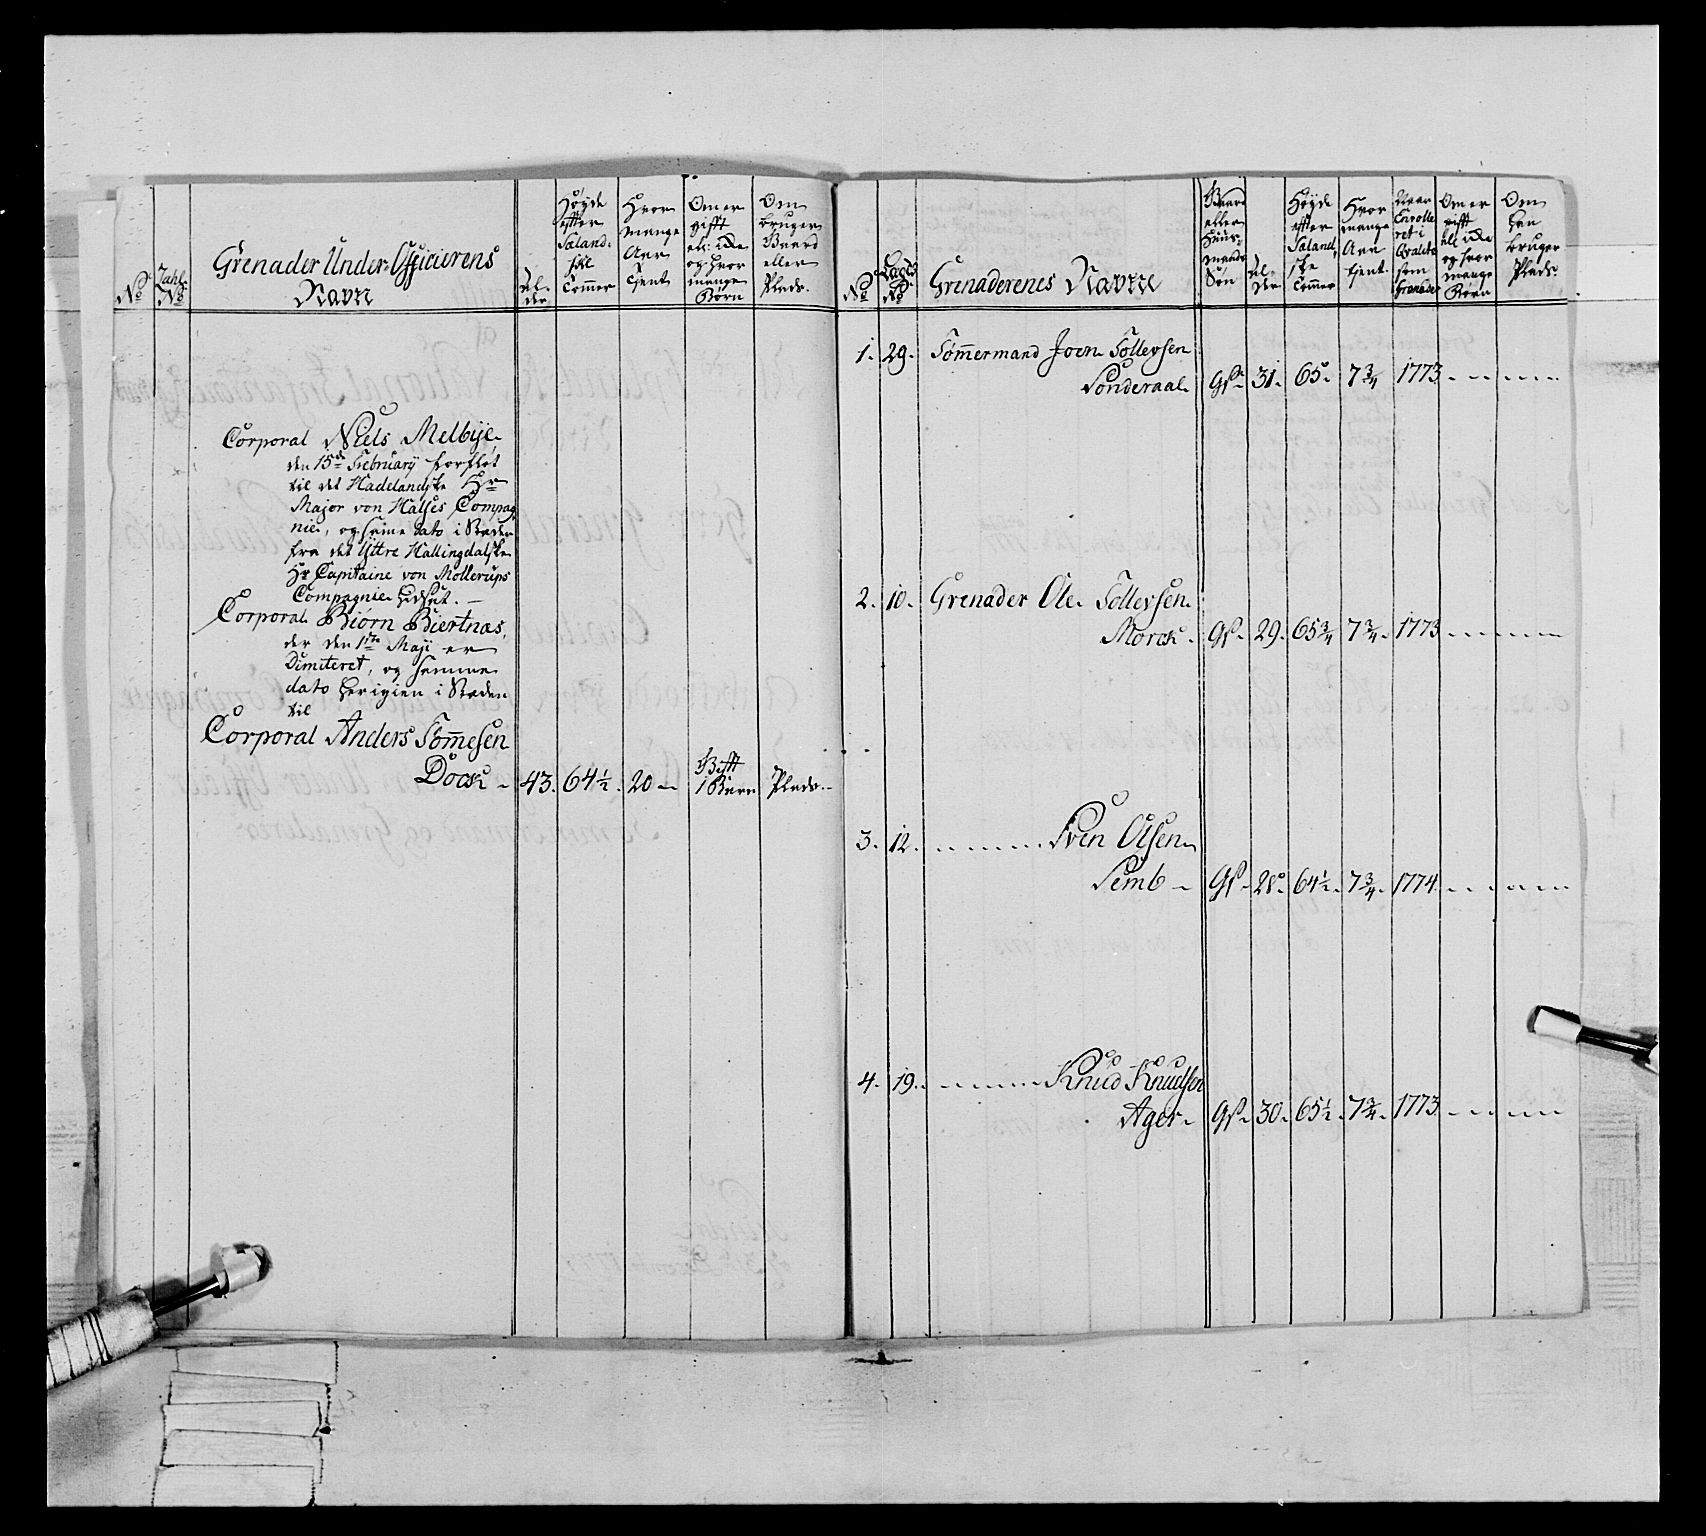 No
Zahl No
Grenader Under-Officierens
Navn
Al-
der
Høyde
efter
Sæland-
ske
Tommer
Hvor
mange
Aar
tient
Om er
gifft
ell: icke
og hvor
mange
Børn
Om
bruger
Gaard
eller
Plads.
Corporal Niels Melbÿe
den 15de Februarÿ forflöt
til det Hadelandske Hr
Major von Halses Compag
nie, og samme dato i Stæden
fra det Ÿttre Hallingdalske
Hr Capitaine von Mollerups
Compagnie udsat.
Corporal Biörn Biertnæs,
der den 1te Maji er
Dimiteret, og samme
dato i Stæden
til
Corporal Anders Tommesen
Döck - 43. 64½. 20 - Gifft 1 Barn Plads.
No
Lægd No
Grenaderenes Navne
Gaard
eller
Huus-
mands
Søn
Al-
der
Høyde
efter
Sæland-
ske
Tommer
Hvor
mange
Aar
tient.
Naar
Enrolle-
ret i
Qvalite
som
Grenader
Om er
gifft
ell icke
og hvor
mange
Børn
Om
han
bruger
Plads.
1. 29. Tömmermand Joen Tollevsen
Sonderaal. GS. 31. 65. 7¾ 1773
2. 10. Grenader Ole Tollevsen
Morck. GS. 29. 65¾ 7¾. 1773
3. 12. Sven Olsen
Semb - GS. 28. 64½. 7¾. 1774
4. 19. Knud Knudsen
Ager. GS. 30. 65½. 7¾. 1773